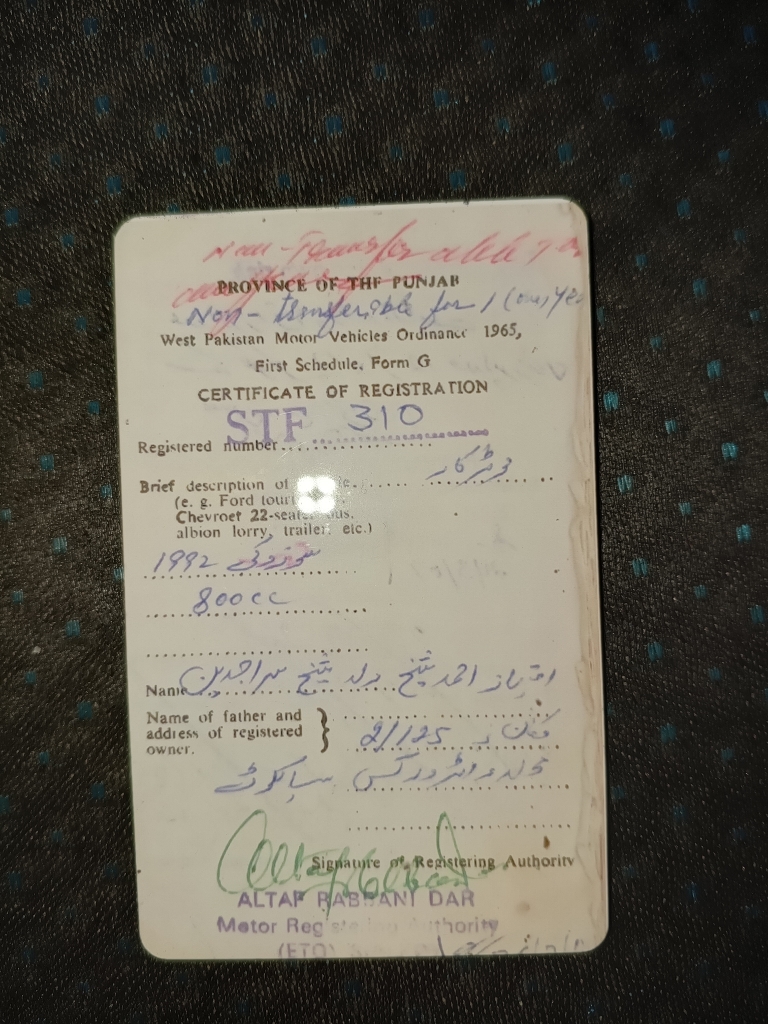 Non-Transferable
PROVINCE OF THE PUNJAB
Non-transferable for 1 (one) Yea
West Pakistan Motor Vehicles Ordinance 1965,
First Schedule, Form G
CERTIFICATE OF REGISTRATION
STF 310
Registered number
Brief description of موٹر کار
(e. g. Ford touri
Chevroet 22-seate bus,
albion lorry, trailer, etc.)
سوزوکی 1992
800cc
Name امتیاز احمد شیخ ولد شیخ سراجدین
Name of father and
address of registered مکان نمبر 2/125
owner.
محلہ واٹرورکس سیالکوٹ
Signature of Registering Authority
ALTAF RABBANI DAR
Motor Registering Authority
(ETO)